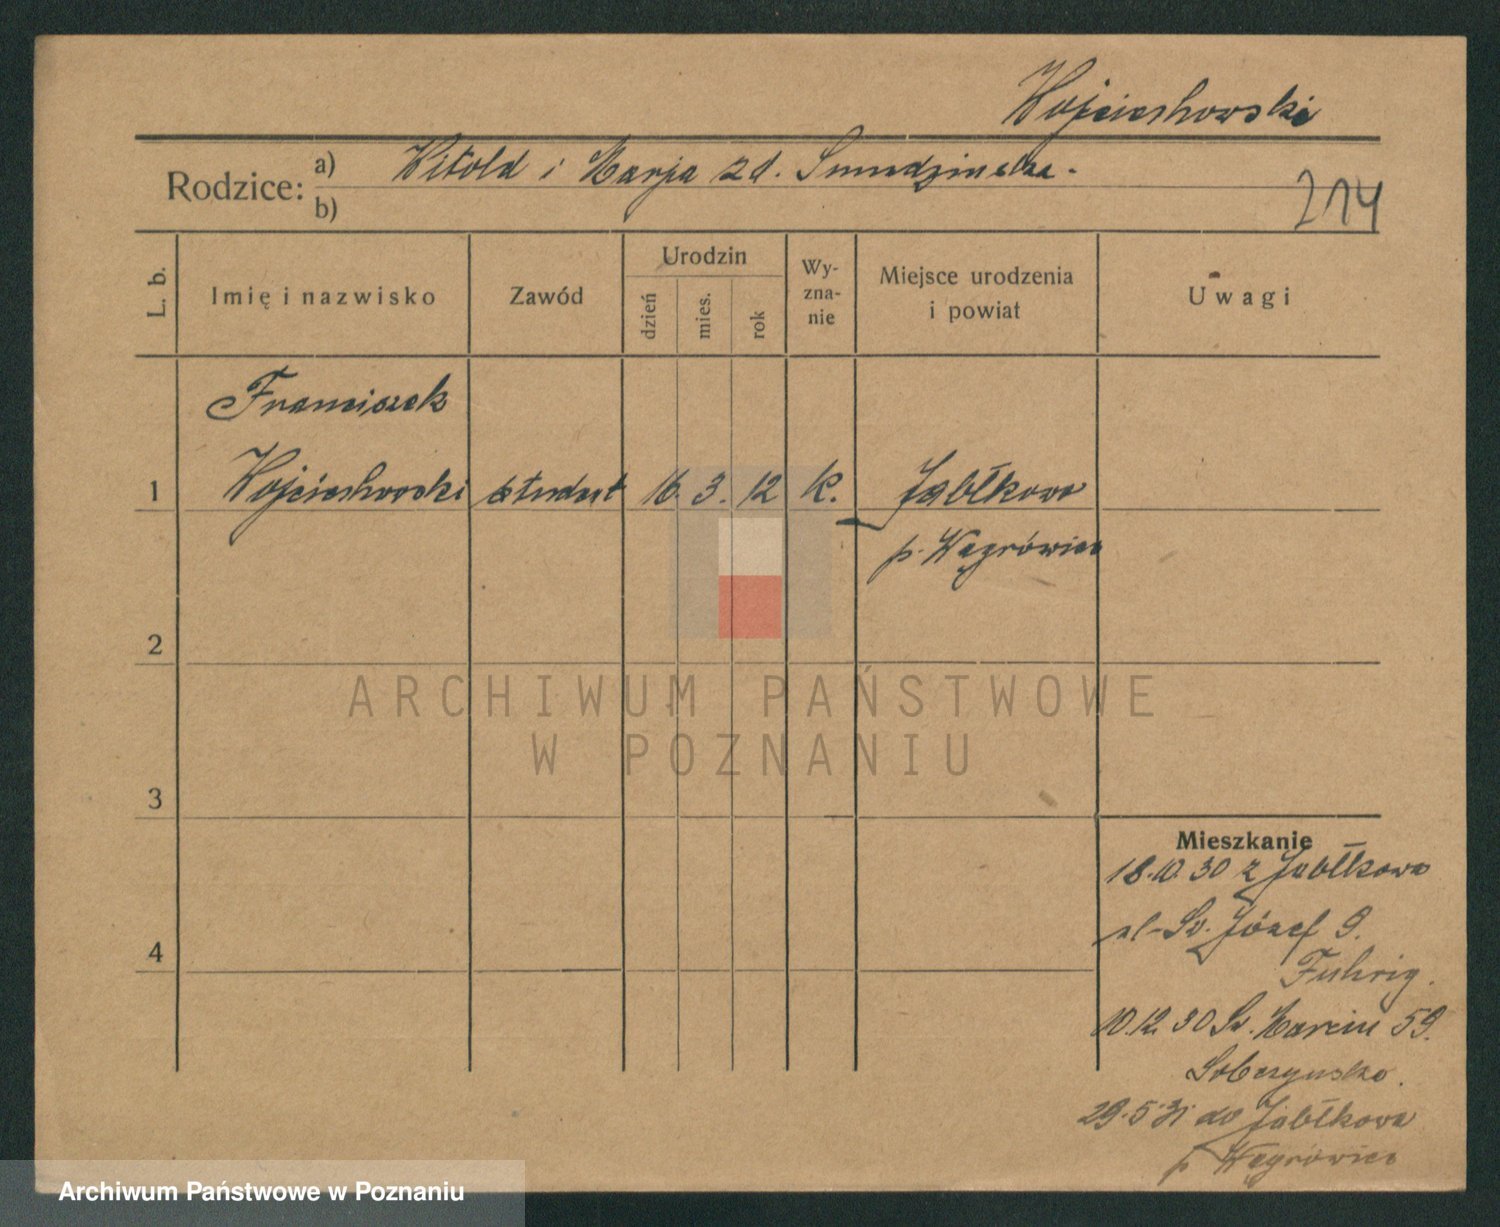 Wojciechowski
Rodzice: a) Witold i Marja zd. Smudzinska.
b)
214
L. b.
Imię i nazwisko
Zawód
Urodzin
dzień
mies.
rok
Wy-
zna-
nie
Miejsce urodzenia
i powiat
Uwagi
Franciszek
1 Wojciechowski student 16. 3. 12 k. Jabłkowo
p. Wągrówiec
2
3
4
Mieszkanie
18.10 30 z Jabłkowa
ul. Św. Józef 9.
Fuhrig.
10.12 30 Św. Marcin 59.
Sobczyńska.
29.5.31 do Jabłkowa
p. Wągrówiec
ARCHIWUM PAŃSTWOWE
W POZNANIU
Archiwum Państwowe w Poznaniu